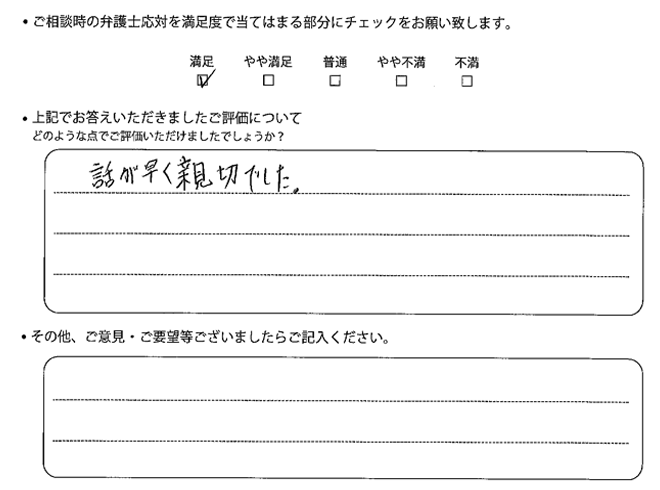 ・ご相談時の弁護士応対を満足度で当てはまる部分にチェックをお願い致します。
満足 やや満足 普通 やや不満 不満
・上記でお答えいただきましたご評価について
どのような点でご評価いただけましたでしょうか？
話が早く親切でした。
・その他、ご意見・ご要望等ございましたらご記入ください。